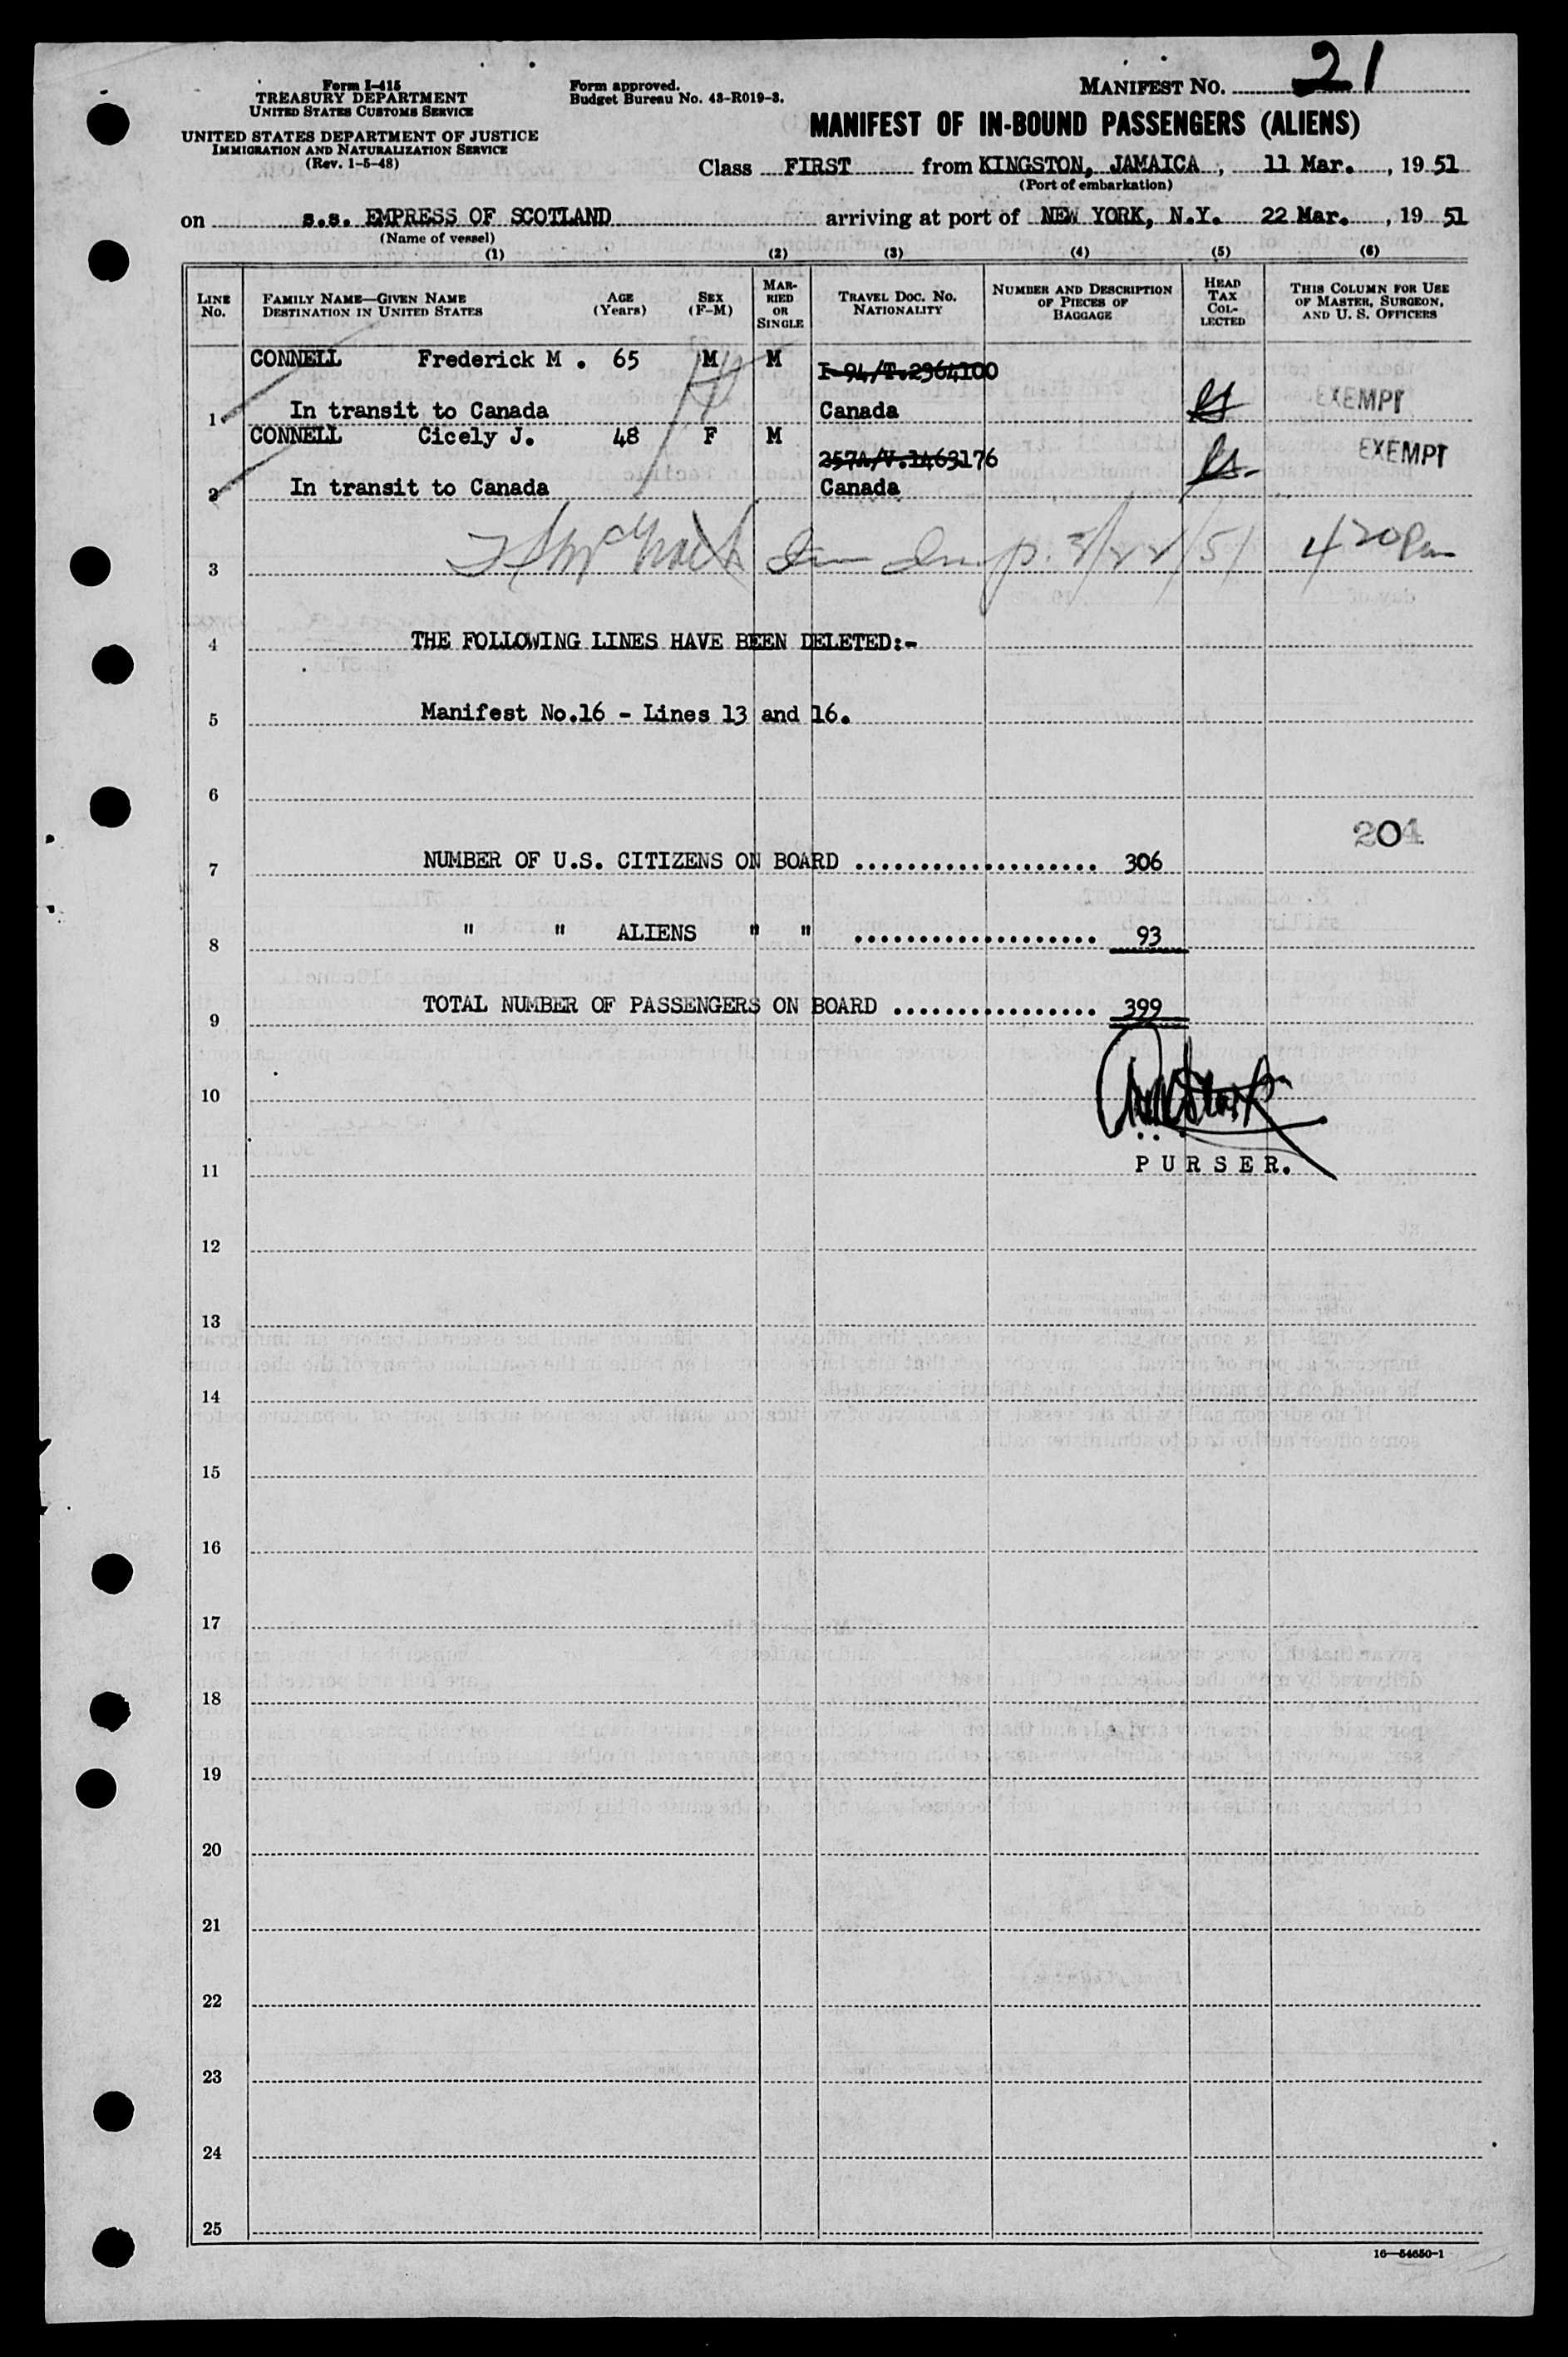 Form I-415
TREASURY DEPARTMENT
UNITED STATES CUSTOMS SERVICE
UNITED STATES DEPARTMENT OF JUSTICE
IMMIGRATION AND NATURALIZATION SERVICE
(Rev. 1-5-48)
Form approved.
Budget Bureau No. 43-R019-3.
MANIFEST NO. 21
MANIFEST OF IN-BOUND PASSENGERS (ALIENS)
Class FIRST from KINGSTON, JAMAICA, 11 Mar., 19 51
(Port of embarkation)
on s.s. EMPRESS OF SCOTLAND arriving at port of NEW YORK, N.Y. 22 Mar., 19 51
(Name of vessel)
(1) (2) (3) (4) (5) (6)
LINE NO. FAMILY NAME—GIVEN NAME DESTINATION IN UNITED STATES AGE (Years) SEX (F-M) MARRIED OR SINGLE TRAVEL DOC. NO. NATIONALITY NUMBER AND DESCRIPTION OF PIECES OF BAGGAGE HEAD TAX COLLECTED THIS COLUMN FOR USE OF MASTER, SURGEON, AND U. S. OFFICERS
CONNELL Frederick M . 65 M M I-94/T.2364100
1 In transit to Canada Canada EXEMPT
CONNELL Cicely J. 48 F M 257A/V.1463176 EXEMPT
2 In transit to Canada Canada
3 3/22/51 4 20 Pm
4 THE FOLLOWING LINES HAVE BEEN DELETED:-
5 Manifest No.16 - Lines 13 and 16.
6
204
7 NUMBER OF U.S. CITIZENS ON BOARD ................... 306
8 " " ALIENS " " ................... 93
9 TOTAL NUMBER OF PASSENGERS ON BOARD ................ 399
10
11 P U R S E R.
12
13
14
15
16
17
18
19
20
21
22
23
24
25
16—54650-1